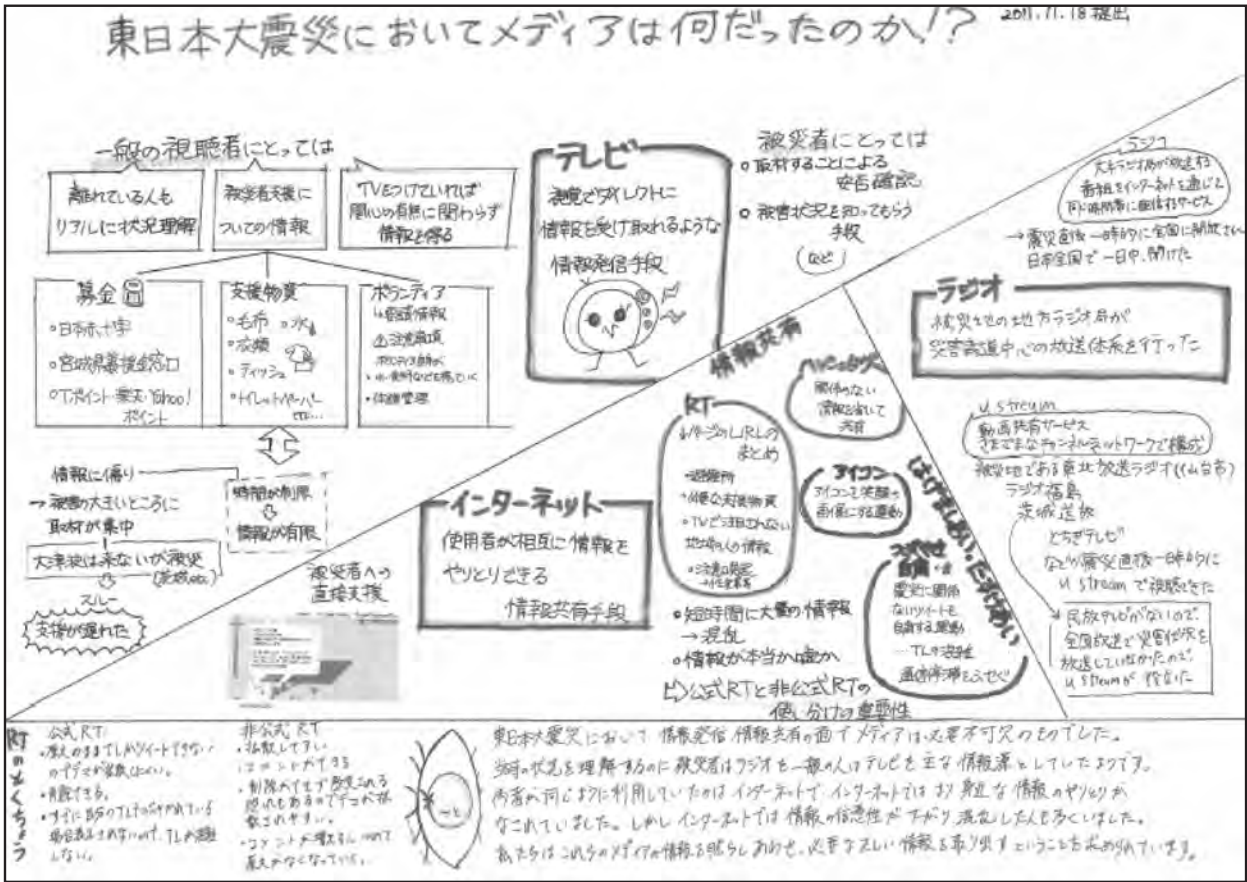 東日本大震災においてメディアは何だったのか!?
2011.11.18 提出
一般の視聴者にとっては
離れている人も
リアルに状況理解
被災者支援に
ついての情報
TVをつけていれば
関心の有無に関わらず
情報を得る
募金
・日本赤十字
・宮城県義援金窓口
・Tポイント・楽天・Yahoo!
ポイント
支援物資
・毛布 ・水
・衣類
・ティッシュ
・トイレットペーパー
etc...
ボランティア
注意事項
・体調管理
情報に偏り
→被害の大きいところに
取材が集中
大津波は来ないが被災
(茨城,etc.)
スルー
支援が遅れた
時間が制限
情報が有限
テレビ
視覚でダイレクトに
情報を受け取れるような
情報発信手段
被災者にとっては
・取材することによる
安否確認
・被害状況を知ってもらう
手段
(など)
インターネット
使用者が相互に情報を
やりとりできる
情報共有手段
被災者への
直接支援
情報共有
RT
まとめ
・避難所
・必要な支援物資
・TVで注目されない
地域の情報
ハッシュタグ
関係のない
情報を省いて
共有
アイコン
アイコンを笑顔の
画像にする運動
つぶやき
自粛
震災に関係
ないツイートも
自粛する運動
はげましあい・たすけあい
・短時間に大量の情報
→混乱
・情報が本当か嘘か
公式RTと非公式RTの
使い分けの重要性
番組をインターネットを通じて
同じ時間帯に配信するサービス
→震災直後一時的に全国に開放され
日本全国で一日中、聞けた
ラジオ
被災地の地方ラジオ局が
災害報道中心の放送体系を行った
Ustream
動画共有サービス
さまざまなチャンネルネットワークで構成
被災地である東北放送ラジオ(仙台市)
ラジオ福島
茨城放送
とちぎテレビ
などが震災直後一時的に
Ustreamで視聴できた
→民放テレビがないので、
全国放送で災害状況を
放送していなかたので、
Ustreamが役立った
RTのとくちょう
公式RT
・原文のままでしかツイートできない
のでデマが拡散しにくい。
・削除できる。
しない。
非公式RT
・拡散しやすい
・コメントができる
散されやすい。
・コメントが増えるにつれて
原文がなくなっていく。
東日本大震災において情報発信、情報共有の面でメディアは必要不可欠のものでした。
当時の状況を理解するのに被災者はラジオを一般の人はテレビを主な情報源としていたようです。
両者が同じように利用していたのはインターネットで、インターネットではより身近な情報のやりとりが
なされていました。しかしインターネットでは情報の信憑性が下がり、混乱した人も多くいました。
私たちはこれらのメディアの情報を照らしあわせ、必要な正しい情報を取り出すということを求められています。